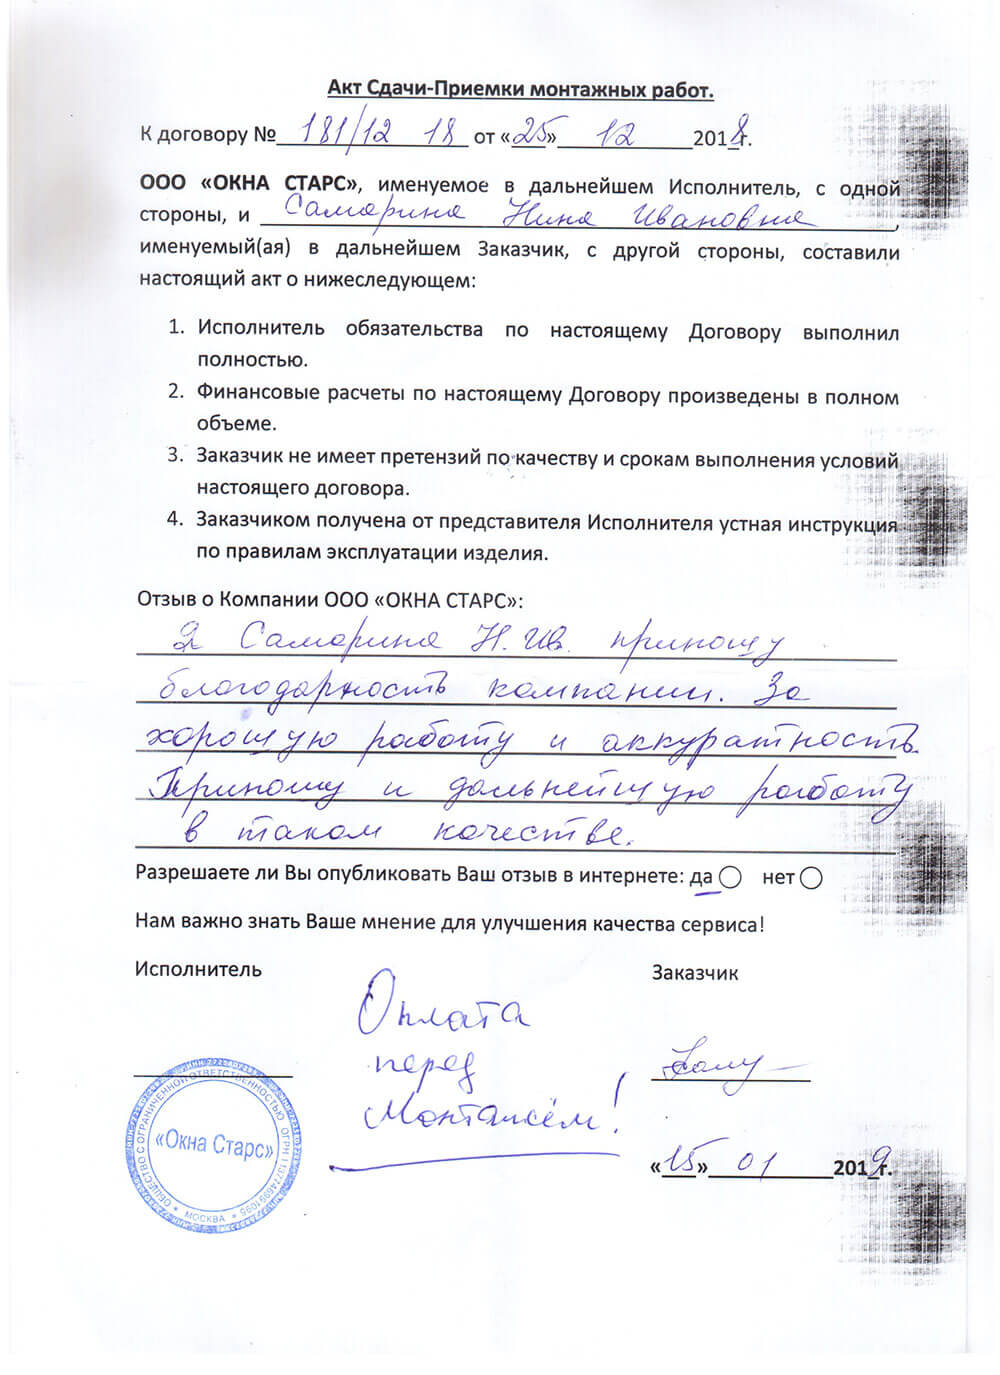 Акт Сдачи-Приемки монтажных работ.
К договору № 181/12 18 от «25» 12 2018г.
ООО «ОКНА СТАРС», именуемое в дальнейшем Исполнитель, с одной
стороны, и Самарина Нина Ивановна,
именуемый(ая) в дальнейшем Заказчик, с другой стороны, составили
настоящий акт о нижеследующем:
1. Исполнитель обязательства по настоящему Договору выполнил
полностью.
2. Финансовые расчеты по настоящему Договору произведены в полном
объеме.
3. Заказчик не имеет претензий по качеству и срокам выполнения условий
настоящего договора.
4. Заказчиком получена от представителя Исполнителя устная инструкция
по правилам эксплуатации изделия.
Отзыв о Компании ООО «ОКНА СТАРС»:
Я Самарина Н. Ив. приношу
благодарность компании. За
хорошую работу и аккуратность.
Приношу и дальнейшую работу
в таком качестве.
Разрешаете ли Вы опубликовать Ваш отзыв в интернете: да нет
Нам важно знать Ваше мнение для улучшения качества сервиса!
Исполнитель
Заказчик
Оплата
перед
Монтажём!
ОБЩЕСТВО С ОГРАНИЧЕННОЙ ОТВЕТСТВЕННОСТЬЮ ОГРН
«Окна Старс»
МОСКВА
«15» 01 2019г.